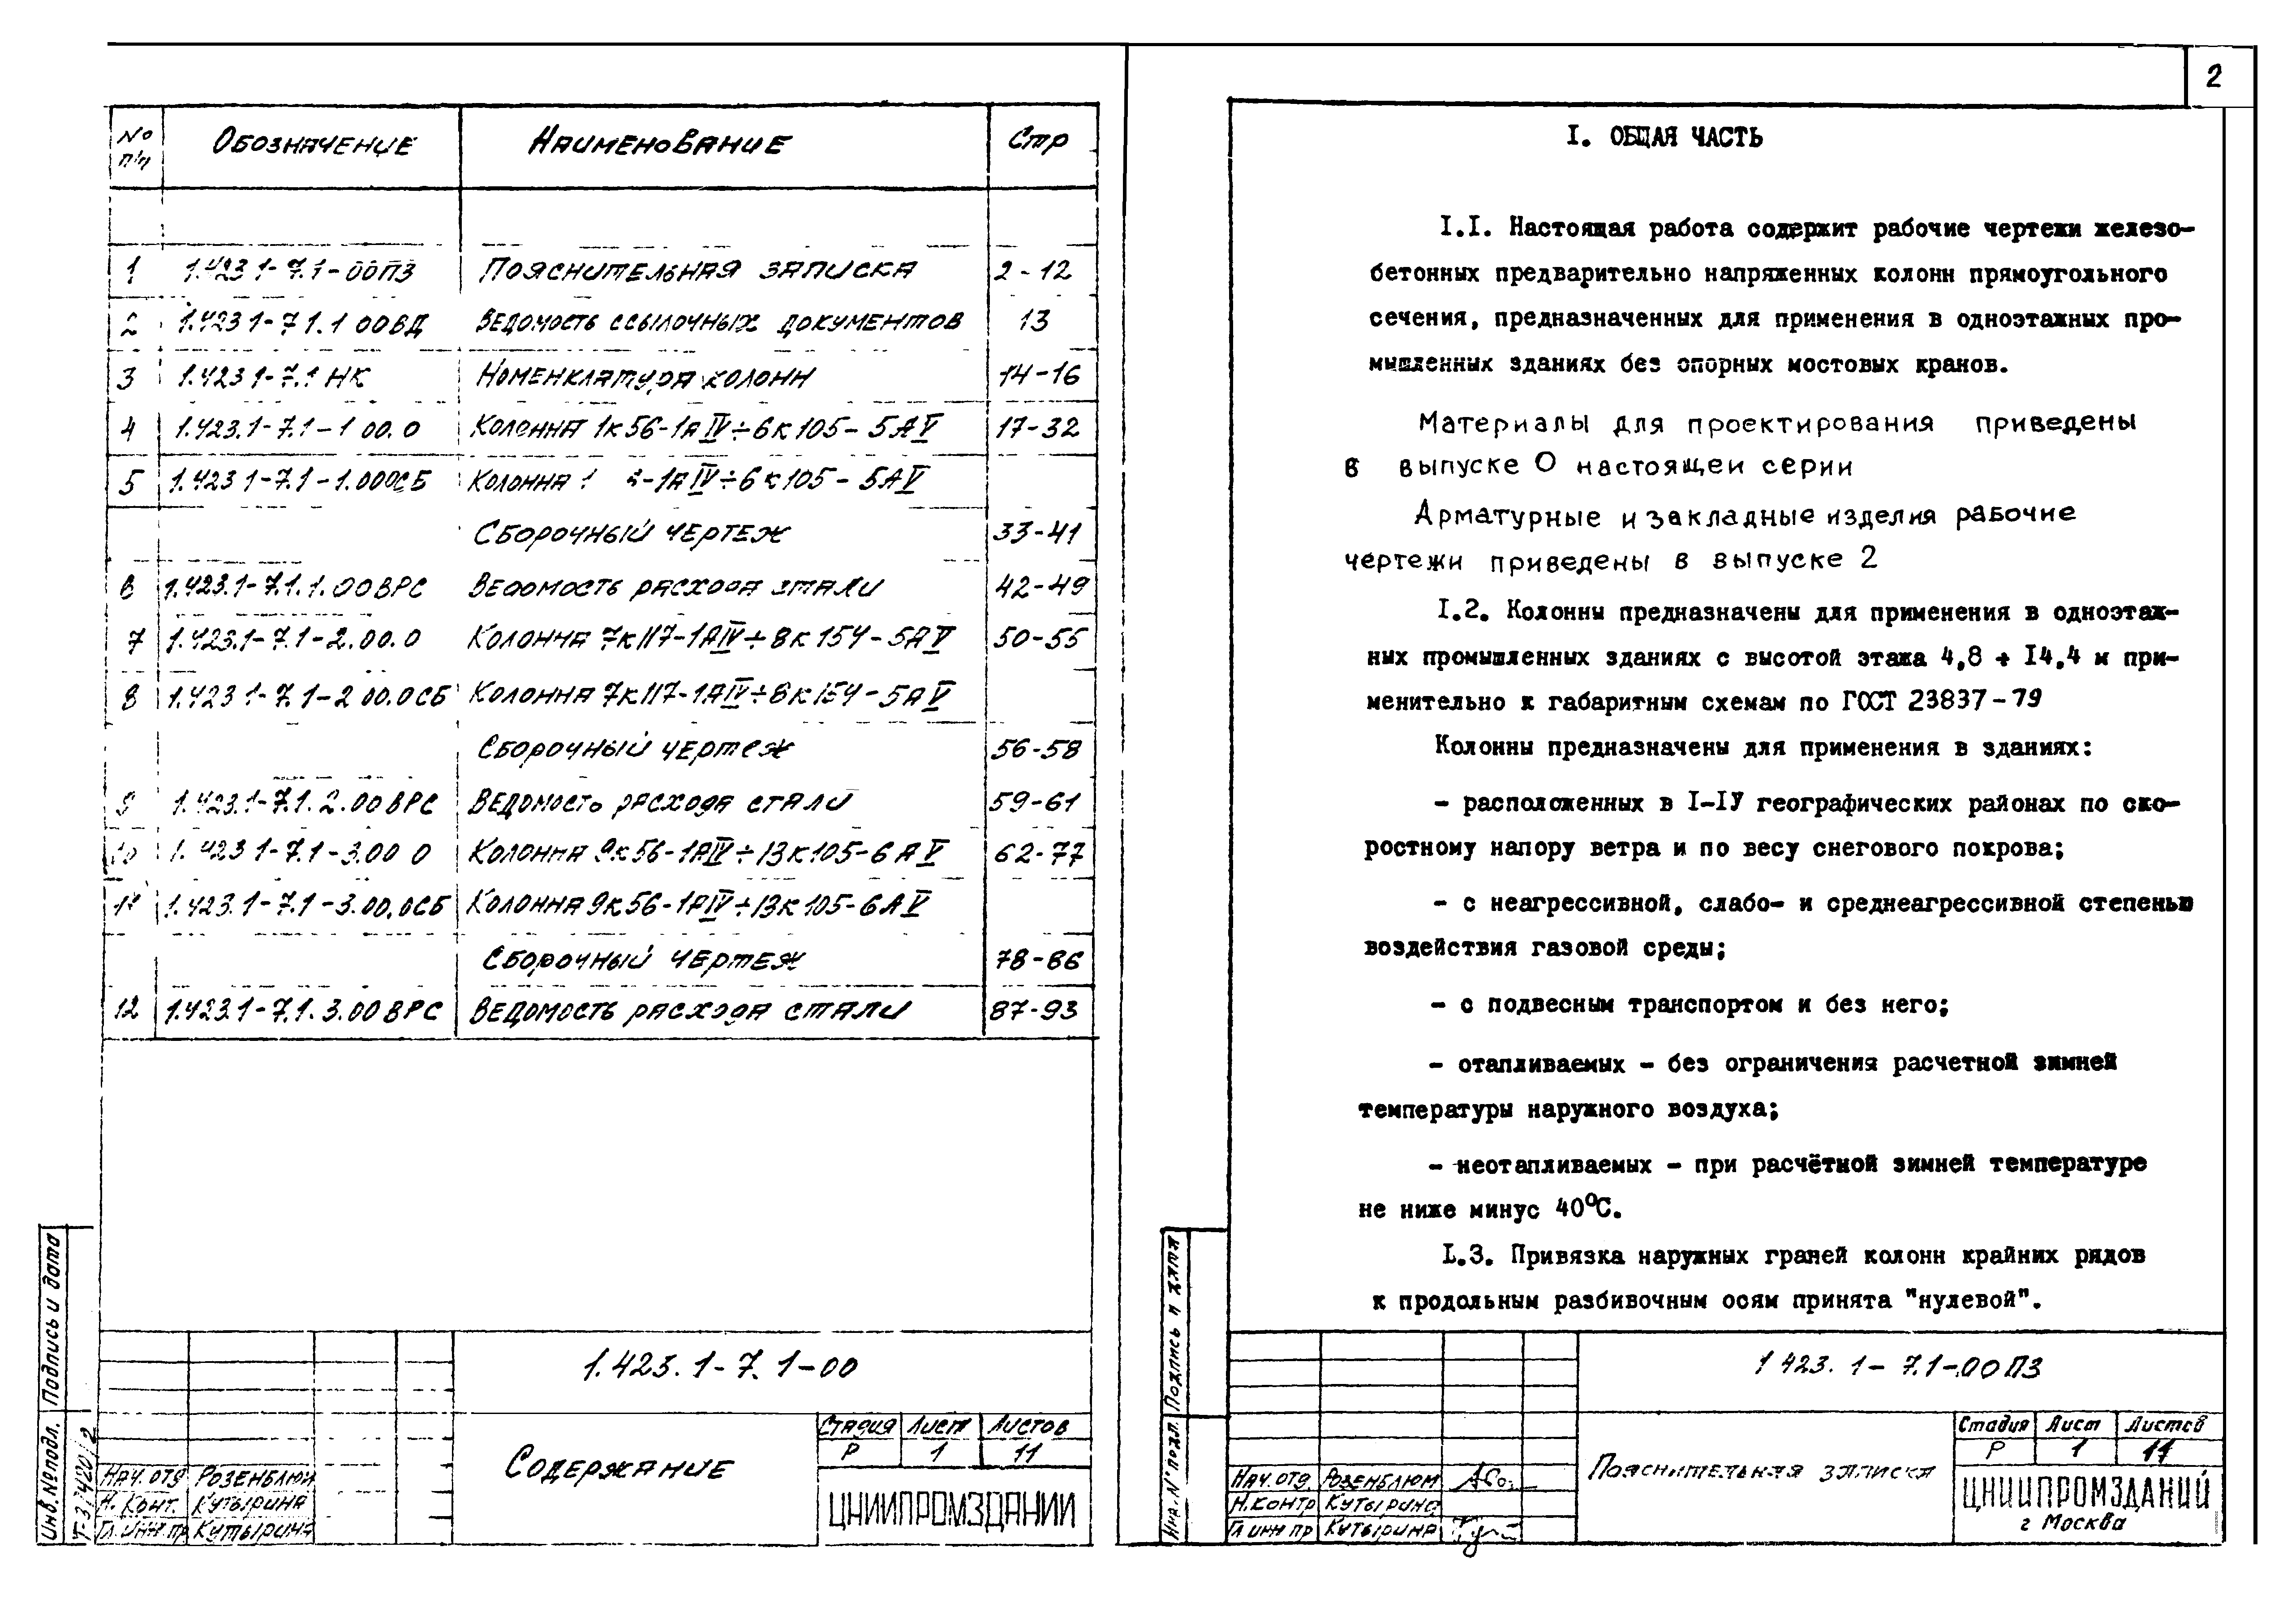 № п/п Обозначение Наименование Стр
1 1.423 1-7.1-00ПЗ Пояснительная записка 2-12
2 1.423 1-7 1.1 00ВД Ведомость ссылочных документов 13
3 1.423 1-7.1 НК Номенклатура колонн 14-16
4 1.423.1-7.1-1 00.0 Колонна 1К56-1АIV÷6К105-5АV 17-32
5 1.423 1-7.1-1.00 0СБ Колонна 1 -1АIV÷6К105-5АV
Сборочный чертеж 33-41
6 1.423.1-7.1.1.00ВРС Ведомость расхода стали 42-49
7 1.423.1-7.1-2.00.0 Колонна 7К117-1АIV÷8К154-5АV 50-55
8 1.423 1-7.1-2 00.0СБ Колонна 7К117-1АIV÷8К154-5АV
Сборочный чертеж 56-58
9 1.423.1-7.1.2.00ВРС Ведомость расхода стали 59-61
10 1.423 1-7.1-3.00 0 Колонна 9К56-1АIV÷13К105-6АV 62-77
11 1.423.1-7.1-3.00.0СБ Колонна 9К56-1АIV÷13К105-6АV
Сборочный чертеж 78-86
12 1.423.1-7.1.3.00ВРС Ведомость расхода стали 87-93
1.423.1-7.1-00
Содержание
Стадия Лист Листов
Р 1 11
ЦНИИПРОМЗДАНИЙ
Нач. отд Розенблюм
Н. Конт. Кутырина
Гл. инж пр. Кутырина
Подпись и дата
Инв. № подл.
Т-3/7420/2
2
I. ОБЩАЯ ЧАСТЬ
I.I. Настоящая работа содержит рабочие чертежи железо-
бетонных предварительно напряженных колонн прямоугольного
сечения, предназначенных для применения в одноэтажных про-
мышленных зданиях без опорных мостовых кранов.
Материалы для проектирования приведены
в выпуске 0 настоящей серии
Арматурные и закладные изделия рабочие
чертежи приведены в выпуске 2
I.2. Колонны предназначены для применения в одноэтаж-
ных промышленных зданиях с высотой этажа 4,8 ÷ I4,4 м при-
менительно к габаритным схемам по ГОСТ 23837-79
Колонны предназначены для применения в зданиях:
- расположенных в I-IУ географических районах по ско-
ростному напору ветра и по весу снегового покрова;
- с неагрессивной, слабо- и среднеагрессивной степенью
воздействия газовой среды;
- с подвесным транспортом и без него;
- отапливаемых - без ограничения расчетной зимней
температуры наружного воздуха;
- неотапливаемых - при расчётной зимней температуре
не ниже минус 40°С.
I.3. Привязка наружных граней колонн крайних рядов
к продольным разбивочным осям принята "нулевой".
1 423. 1- 7.1-00 ПЗ
Пояснительная записка
Стадия Лист Листов
Р 1 11
ЦНИИПРОМЗДАНИЙ
г Москва
Нач. отд. Розенблюм
Н. контр Кутырина
Гл инж пр Кутырина
Подпись и дата
Инв. № подл.